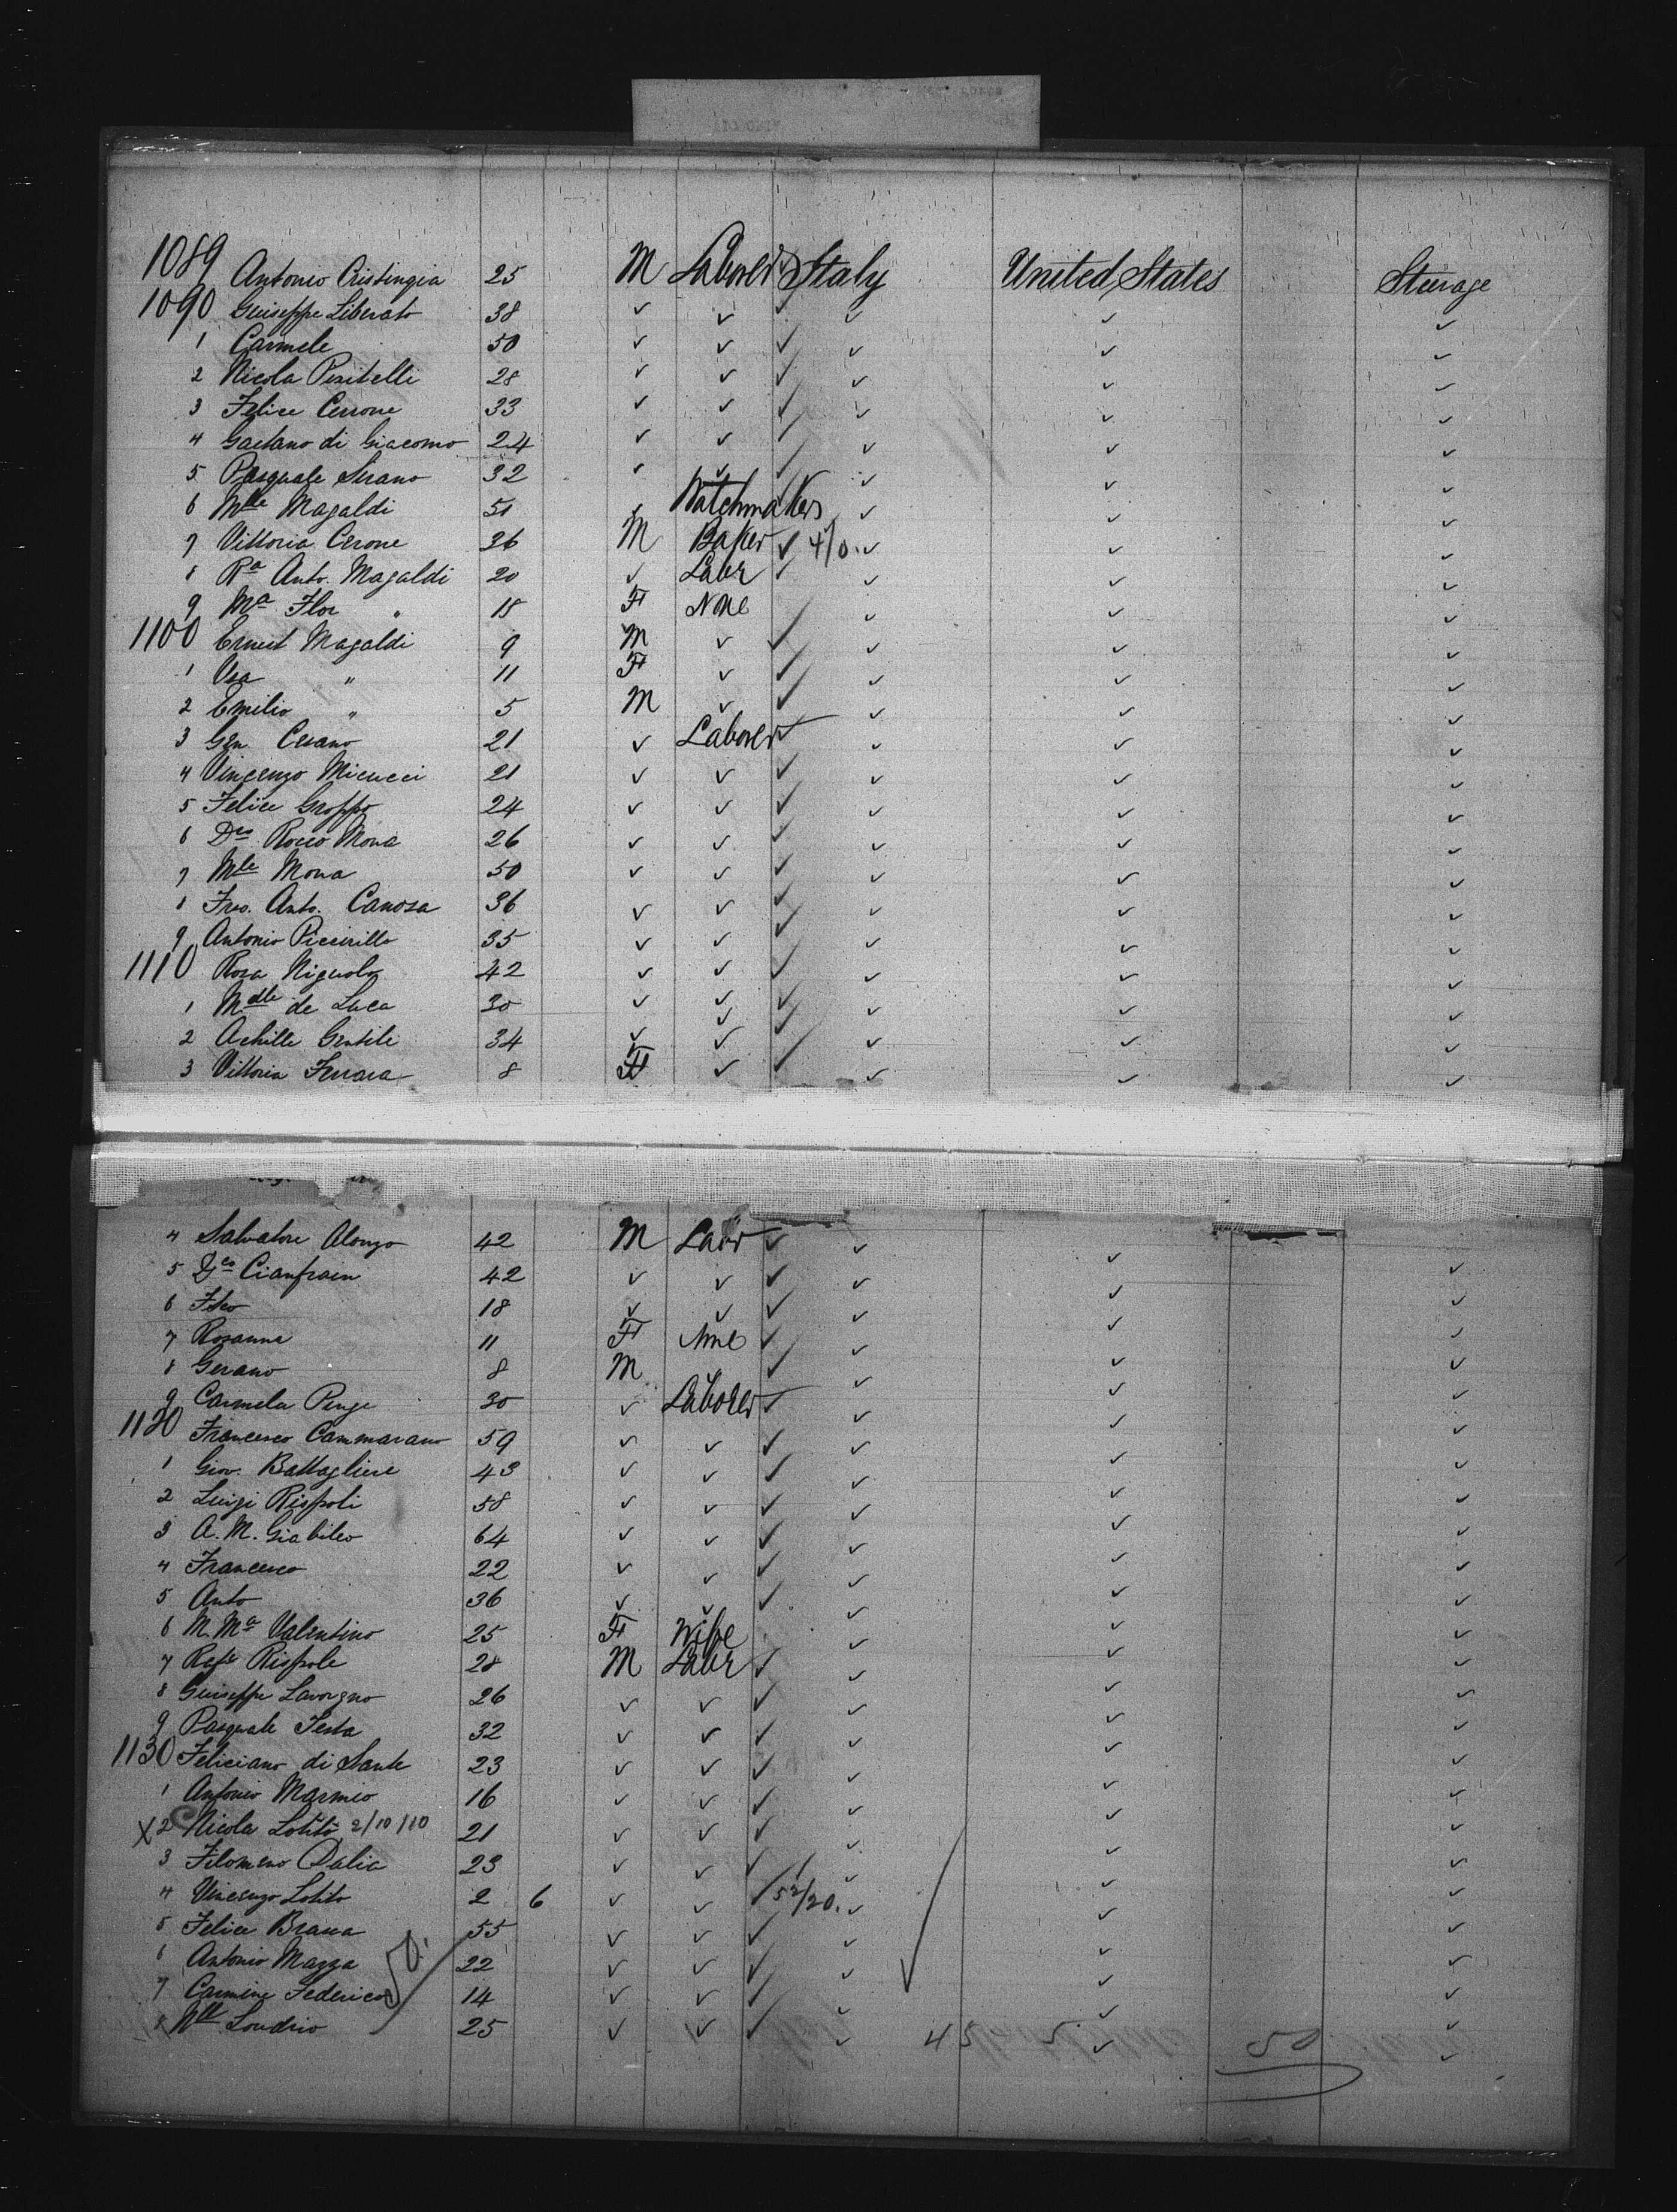 1089 Antonio Cristingia 25 M Laborer Italy United States Steerage
1090 Guiseppe Liberato 38 ✓ ✓ ✓ ✓ ✓ ✓
1 Carmele 50 ✓ ✓ ✓ ✓ ✓ ✓
2 Nicola Pesitelli 28 ✓ ✓ ✓ ✓ ✓ ✓
3 Felice Cerrone 33 ✓ ✓ ✓ ✓ ✓ ✓
4 Gaetano di Giacomo 24 ✓ ✓ ✓ ✓ ✓ ✓
5 Pasquale Sirano 32 ✓ ✓ ✓ ✓ ✓ ✓
6 Mle Magaldi 51 ✓ Watchmakers ✓ ✓ ✓
7 Vittoria Cerone 36 M Baker ✓ 4/0. ✓ ✓ ✓
8 Ra Anto. Magaldi 20 ✓ Labr ✓ ✓ ✓ ✓
9 Ma Flor " 18 F None ✓ ✓ ✓
1100 Ernest Magaldi 9 M ✓ ✓ ✓ ✓ ✓
1 Vea " 11 F ✓ ✓ ✓ ✓ ✓
2 Emilio " 5 M ✓ ✓ ✓ ✓ ✓
3 Gen. Cesano 21 ✓ Laborer ✓ ✓ ✓ ✓
4 Vincenzo Micucci 21 ✓ ✓ ✓ ✓ ✓ ✓
5 Felice Groppo 24 ✓ ✓ ✓ ✓ ✓ ✓
6 Dco Rocco Mona 26 ✓ ✓ ✓ ✓ ✓ ✓
7 Mle Mona 50 ✓ ✓ ✓ ✓ ✓ ✓
8 Frco. Anto. Canosa 36 ✓ ✓ ✓ ✓ ✓ ✓
9 Antonio Piccirillo 35 ✓ ✓ ✓ ✓ ✓ ✓
1110 Rosa Niguolo 42 ✓ ✓ ✓ ✓ ✓ ✓
1 Mdle de Luca 30 ✓ ✓ ✓ ✓ ✓ ✓
2 Achille Gentile 34 ✓ ✓ ✓ ✓ ✓ ✓
3 Vittoria Ferrara 8 F ✓ ✓ ✓ ✓ ✓
4 Salvatore Alonzo 42 M Labr ✓ ✓ ✓ ✓
5 Dco Cianfrain 42 ✓ ✓ ✓ ✓ ✓ ✓
6 Fsco 18 ✓ ✓ ✓ ✓ ✓ ✓
7 Rosanna 11 F None ✓ ✓ ✓ ✓
8 Gerano 8 M ✓ ✓ ✓ ✓
9 Carmela Penge 30 ✓ Laborer ✓ ✓ ✓ ✓
1120 Francesco Cammarano 59 ✓ ✓ ✓ ✓ ✓ ✓
1 Giov. Battagliese 43 ✓ ✓ ✓ ✓ ✓ ✓
2 Luigi Rispoli 58 ✓ ✓ ✓ ✓ ✓ ✓
3 A. M. Giabileo 64 ✓ ✓ ✓ ✓ ✓ ✓
4 Francesco 22 ✓ ✓ ✓ ✓ ✓ ✓
5 Anto 36 ✓ ✓ ✓ ✓ ✓ ✓
6 M. Ma Valentino 25 F Wife ✓ ✓ ✓
7 Rafe Rispole 28 M Labr ✓ ✓ ✓ ✓
8 Guiseppe Lavorgno 26 ✓ ✓ ✓ ✓ ✓ ✓
9 Pasquale Testa 32 ✓ ✓ ✓ ✓ ✓ ✓
1130 Feliciano di Sante 23 ✓ ✓ ✓ ✓ ✓ ✓
1 Antonio Marmeo 16 ✓ ✓ ✓ ✓ ✓ ✓
X 2 Nicola Lotito 2/10/10 21 ✓ ✓ ✓ ✓ ✓ ✓
3 Filomeno Dalia 23 ✓ ✓ ✓ ✓ ✓ ✓
4 Vincenzo Lotito 2 6 ✓ ✓ ✓ 52/20. ✓ ✓ ✓
5 Felice Brassa 55 ✓ ✓ ✓ ✓ ✓ ✓
6 Antonio Mazza 22 ✓ ✓ ✓ ✓ ✓ ✓
7 Carmine Federico 14 ✓ ✓ ✓ ✓ ✓ ✓
8 Nll Londrio 25 ✓ ✓ ✓ ✓ ✓ ✓
50